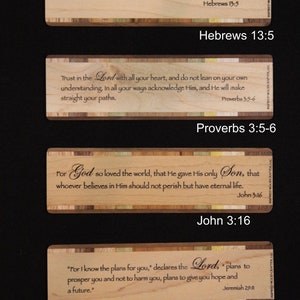 Hebrews 13:5
Hebrews 13:5
Trust in the Lord with all your heart, and do not lean on your own
understanding. In all your ways acknowledge Him, and He will make
straight your paths.
Proverbs 3:5-6
Proverbs 3:5-6
For God so loved the world, that He gave His only Son, that
whoever believes in Him should not perish but have eternal life.
John 3:16
John 3:16
"For I know the plans for you," declares the Lord, "plans to
prosper you and not to harm you, plans to give you hope and
a future."
Jeremiah 29:11